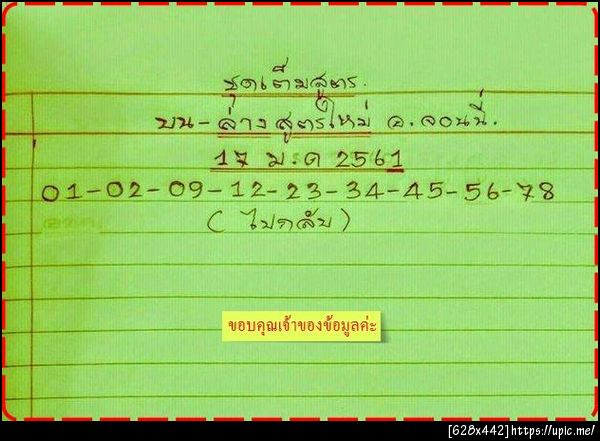 ชุดเต็มสูตร.
บน-ล่าง สูตรใหม่ อ.จอนนี่.
17 ม.ค 2561
01-02-09-12-23-34-45-56-78
(ไปกลับ)
ขอบคุณเจ้าของข้อมูลค่ะ
[628x442]https://upic.me/